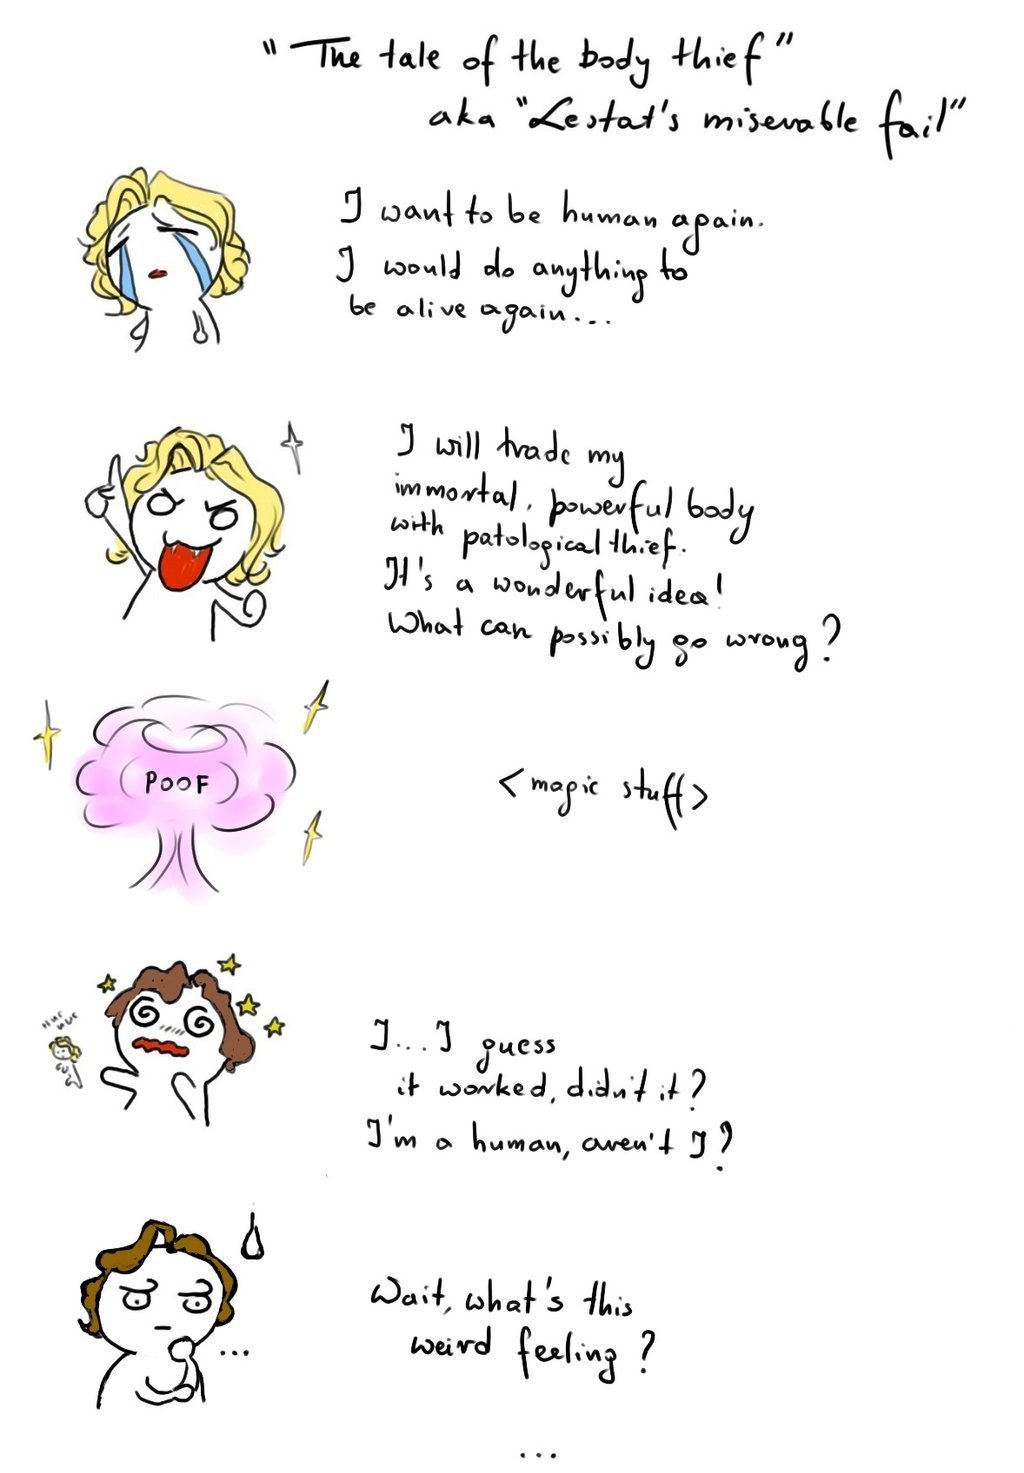 "The tale of the body thief"
aka "Lestat's miserable fail"
I want to be human again.
I would do anything to
be alive again...
I will trade my
immortal, powerful body
with patological thief.
It's a wonderful idea!
What can possibly go wrong?
POOF
<magic stuff>
I...I guess
it worked, didn't it?
I'm a human, aren't I?
Wait, what's this
weird feeling?
...
...